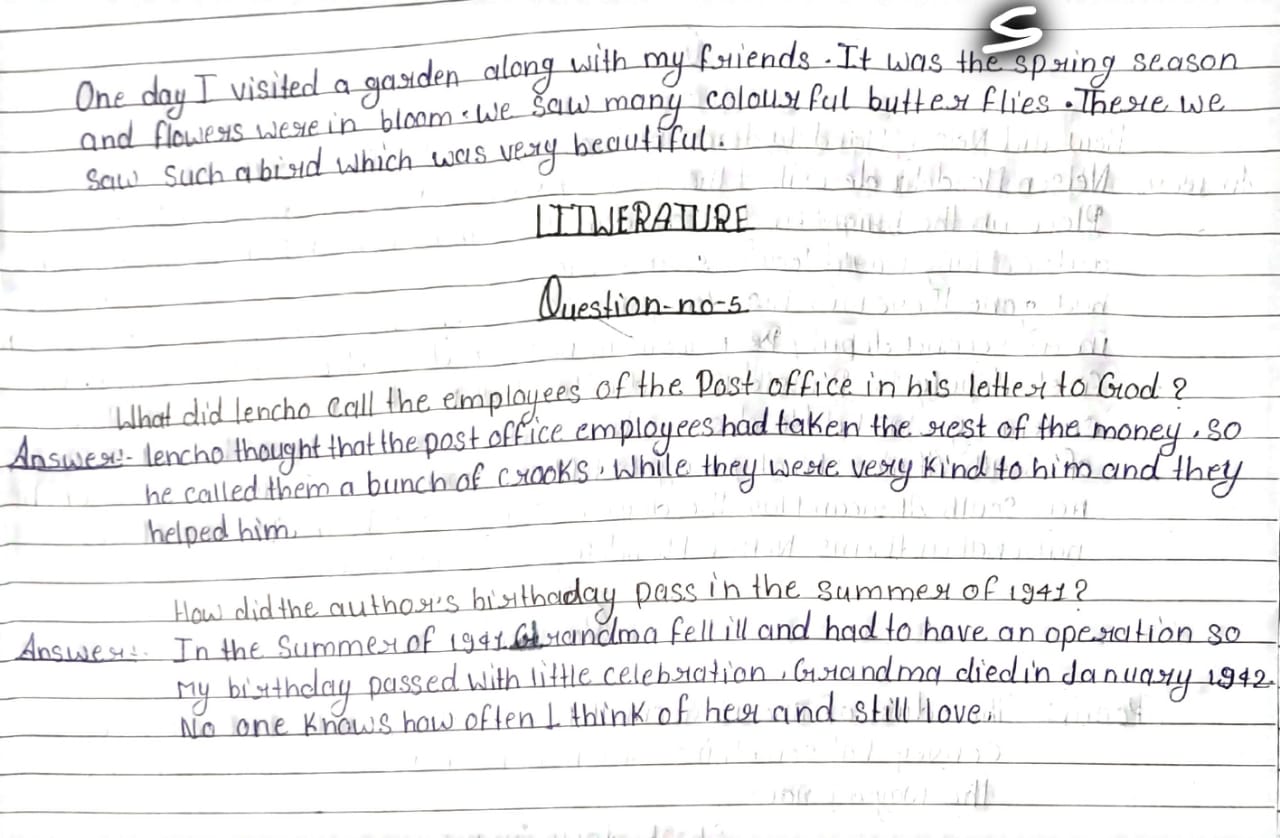 S
One day I visited a garden along with my friends. It was the spring season
and flowers were in bloom. We saw many colourful butterflies. There we
saw such a bird which was very beautiful.
LITWERATURE
Question-no-5
What did lencho call the employees of the Post office in his letter to God?
Answer:- lencho thought that the post office employees had taken the rest of the money, so
he called them a bunch of crooks. While they were very kind to him and they
helped him.
How did the author's birthaday pass in the summer of 1941?
Answer:- In the Summer of 1941 Grandma fell ill and had to have an operation so
My birthday passed with little celebration. Grandma died in January 1942.
No one knows how often I think of her and still love.